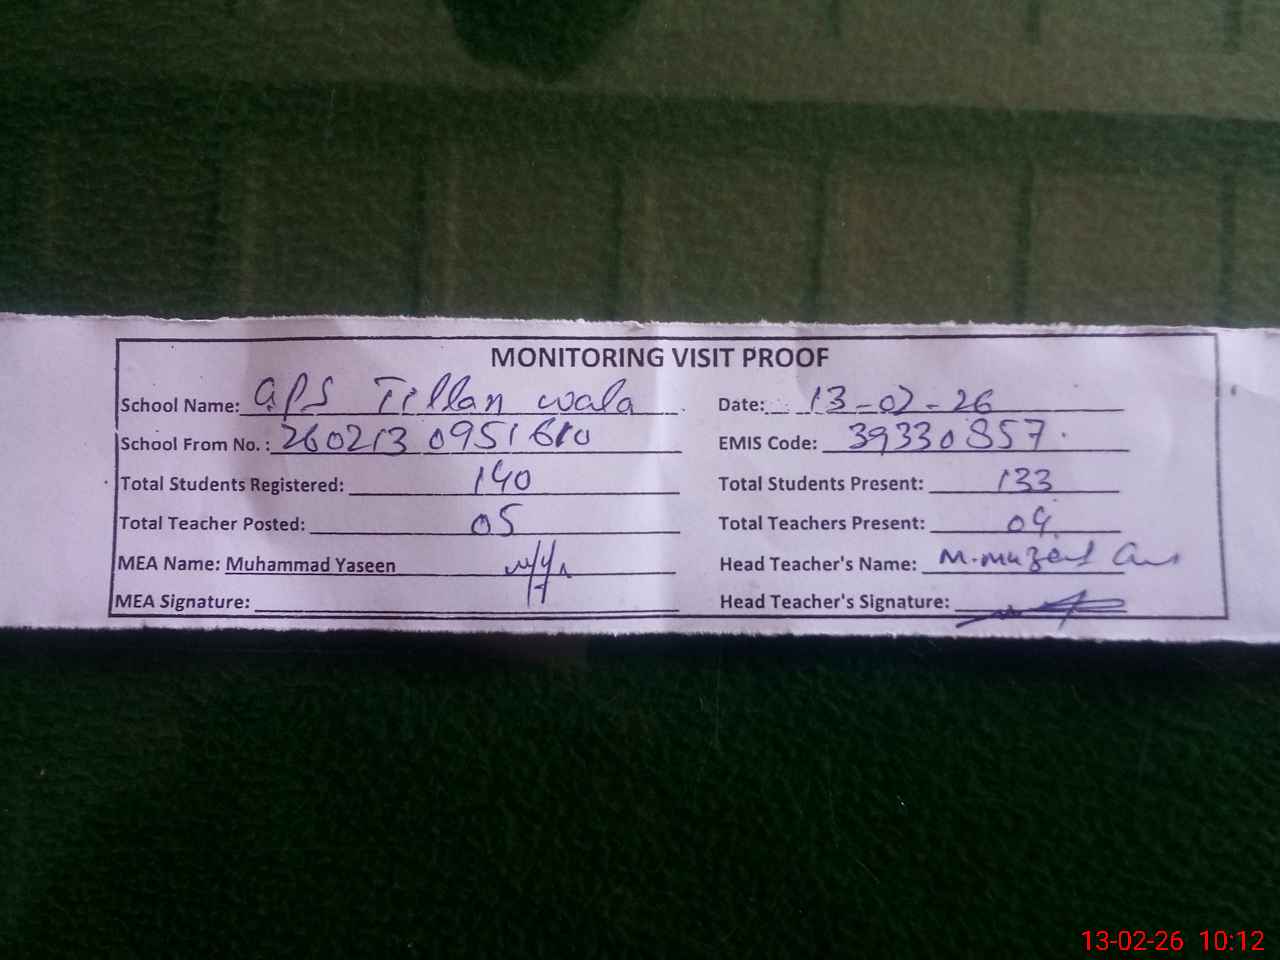 MONITORING VISIT PROOF
School Name: GPS Tillan wala Date: 13-02-26
School From No. : 260213 0951610 EMIS Code: 39330857
Total Students Registered: 140 Total Students Present: 133
Total Teacher Posted: 05 Total Teachers Present: 04
MEA Name: Muhammad Yaseen Head Teacher's Name:
MEA Signature: Head Teacher's Signature:
13-02-26 10:12